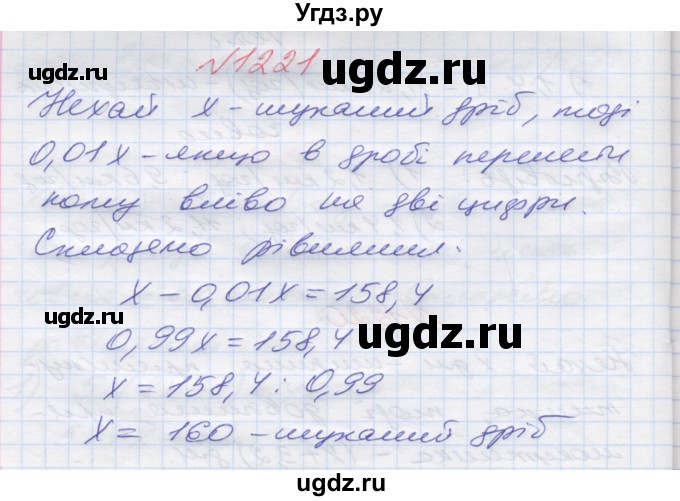 Угдз.ру
№1221
Нехай x - шуканий дріб, тоді
0,01x - якщо в дробі перенести
кому вліво на дві цифри.
Складемо рівняння.
x - 0,01x = 158,4
0,99x = 158,4
x = 158,4 : 0,99
x = 160 - шуканий дріб
ugdz.ru
ugdz.ru
ugdz.ru
ugdz.ru
ugdz.ru
ugdz.ru
ugdz.ru
ugdz.ru